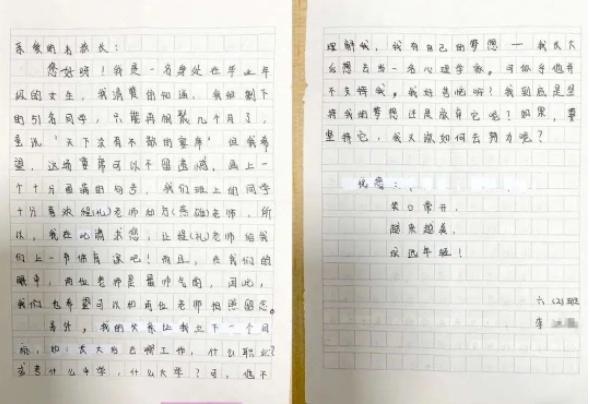 亲爱的李校长：
您好呀！我是一名身处在毕业年
级的女生，我清楚的知道，我们剩下
的51名同学，只能再相聚几个月了，
虽说“天下没有不散的宴席”但我希
望，这场宴席可以不留遗憾，画上一
个十分圆满的句号，我们班上的同学
十分喜欢程(礼)老师和方(燕础)老师，所
以，我在此请求您，让程(礼)老师给我
们上一节体育课吧！而且，在我们的
眼中，两位老师是最帅气的，因此，
我们也希望可以和两位老师拍照留念。
另外，我的父亲让我立下一个目
标，如：长大后去哪工作，什么职业？
或考什么中学，什么大学？可，他不
理解我，我有自己的梦想——我长大
后想去当一名心理学家。可似乎他并
不支持我。我好苦恼呀！我到底是坚
持我的梦想还是放弃它呢？如果，要
坚持它，我又该如何去努力呢？
祝您：
笑口常开，
越来越美，
永远年轻！
六(2)班
李